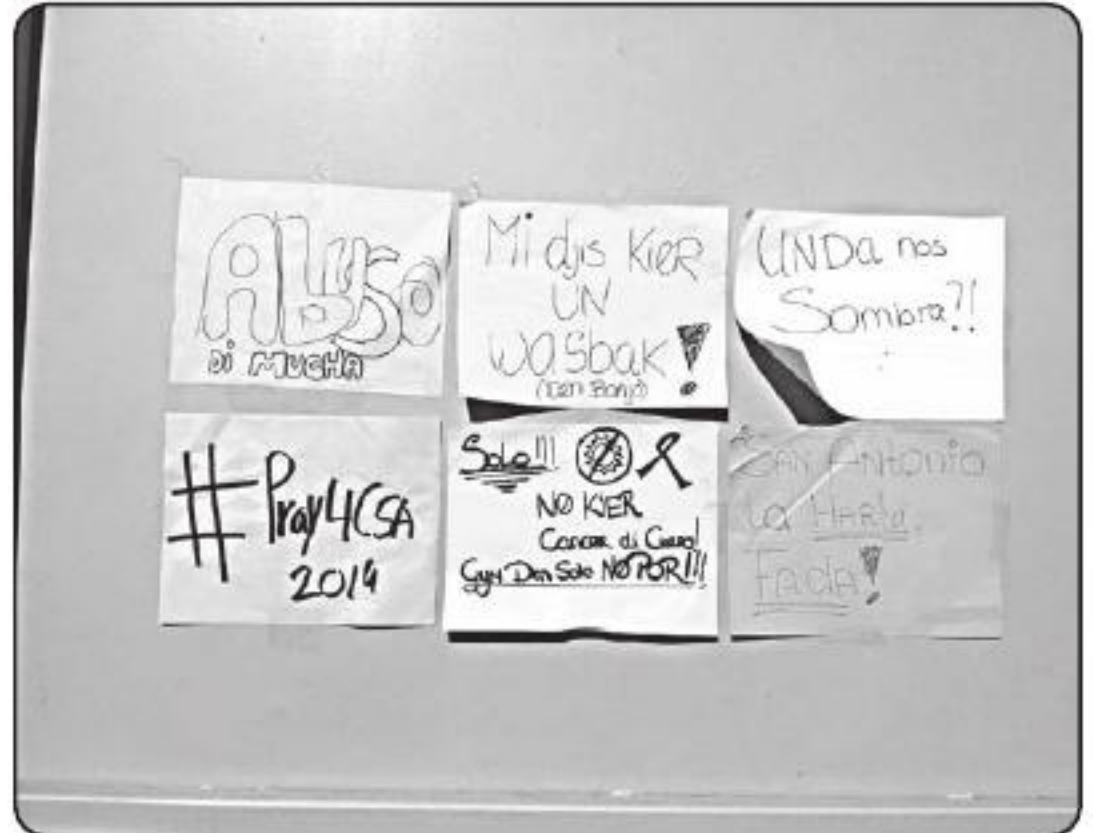 ABUSO
Di MUCHA
Mi djis KieR
UN
WaSbak!
(Den Banjo)
UNDa nos
Sombra?!
#Pray4CSA
2014
Solo!!!
NO KIER
Cancer di Cuero!
Gym Den Solo NO POR!!!
SAN ANtonio
ta HARto.
FadA!